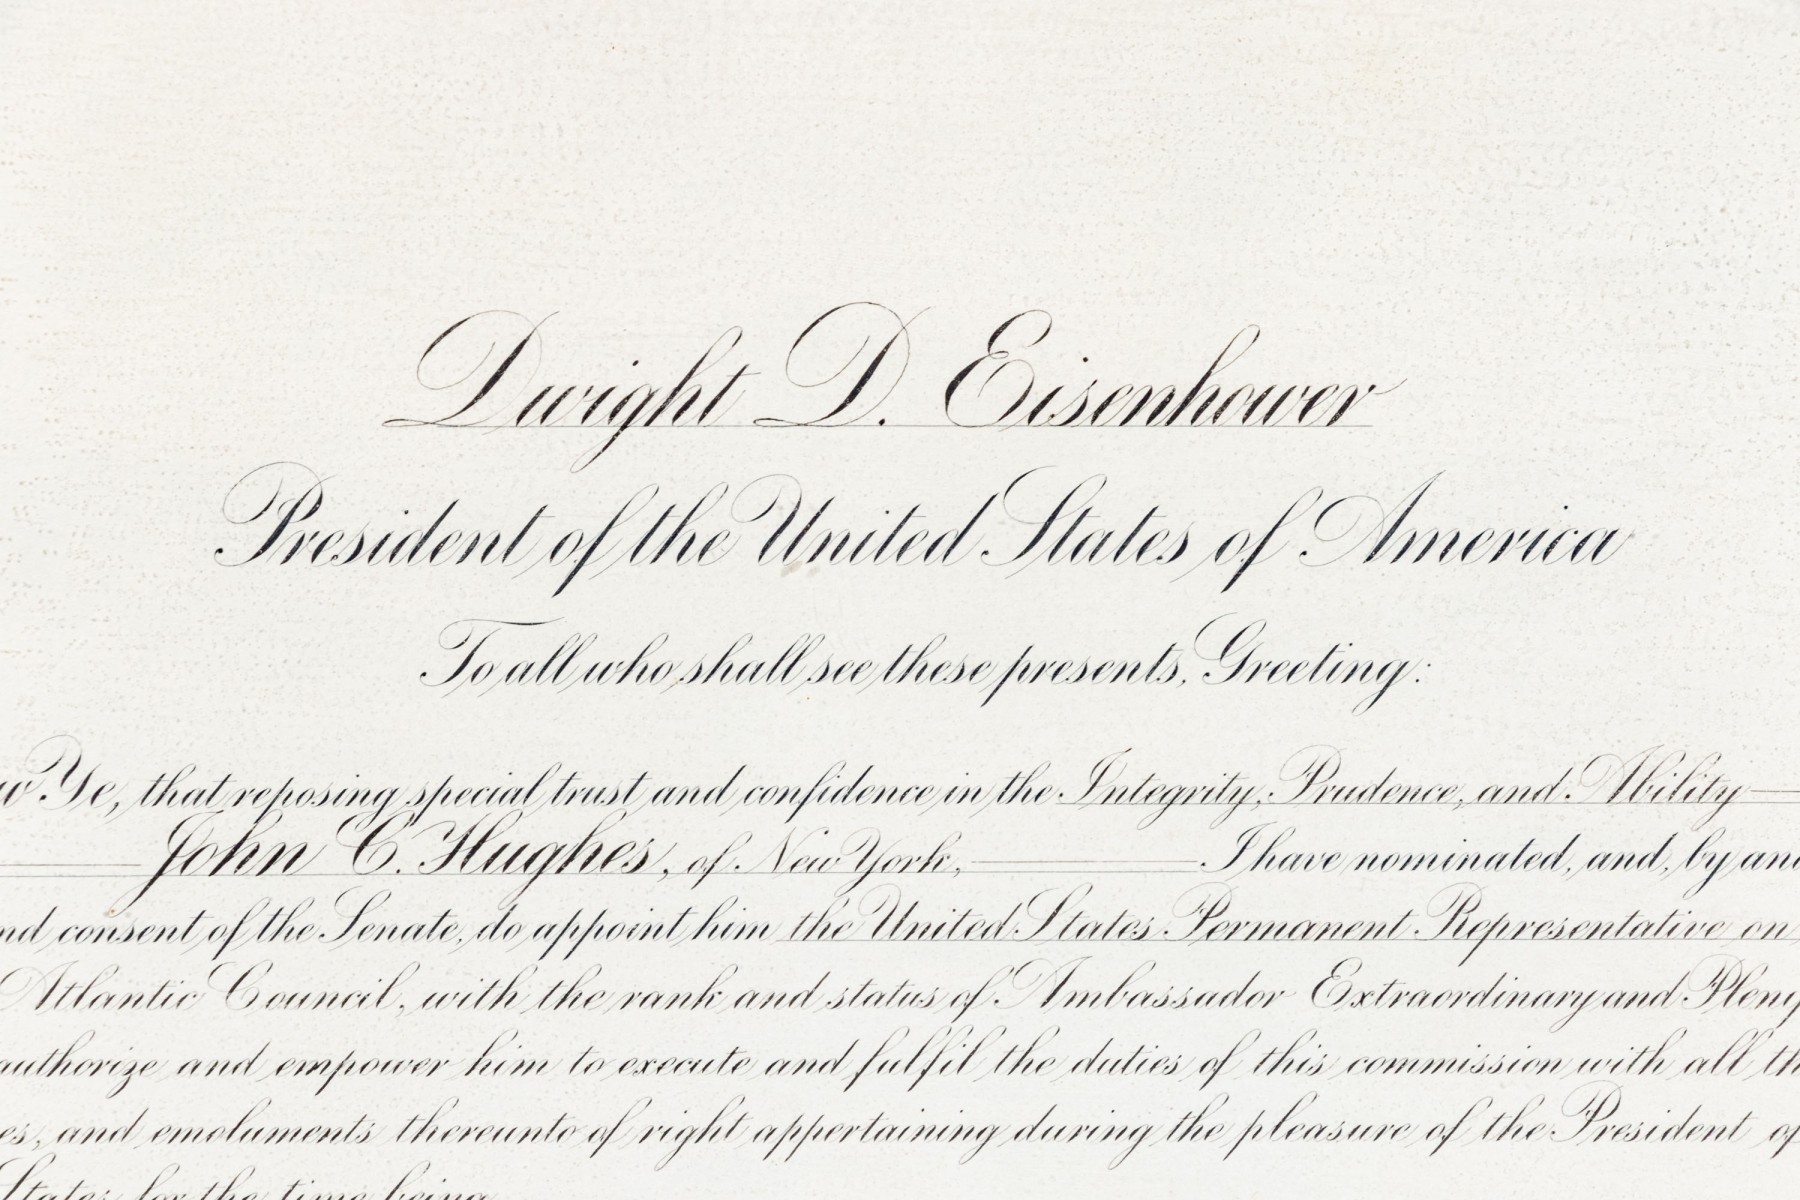 Dwight D. Eisenhower
President of the United States of America
To all who shall see these presents, Greeting:
Ye, that reposing special trust and confidence in the Integrity, Prudence, and Ability
John C. Hughes, of New York, I have nominated, and, by and
and consent of the Senate, do appoint him the United States Permanent Representative on
Atlantic Council, with the rank and status of Ambassador Extraordinary and
authorize and empower him to execute and fulfil the duties of this commission with all
and emoluments thereunto of right appertaining during the pleasure of the President of
States for the time being